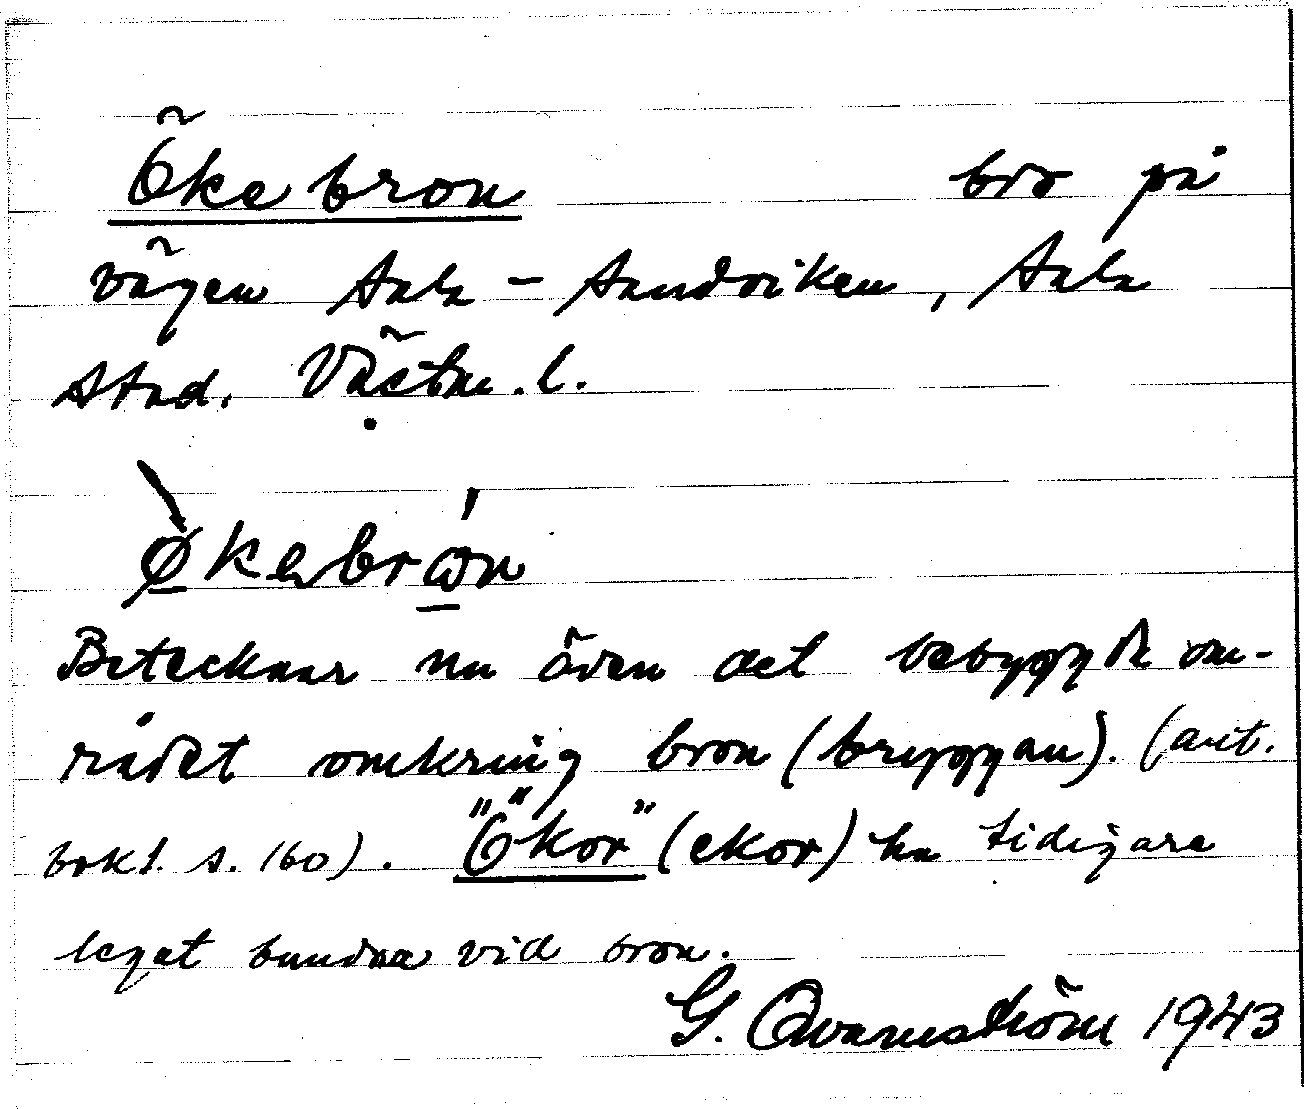 Ökebron bro på
vägen Sala - Sandviken, Sala
stad. Västm. l.
Økebrωn
Betecknar nu även det bebyggda om-
rådet omkring bron (bryggan). (ant.
bokl. s. 160). "Ökor" (ekor) ha tidigare
legat bundna vid bron.
G. Qvarnström 1943